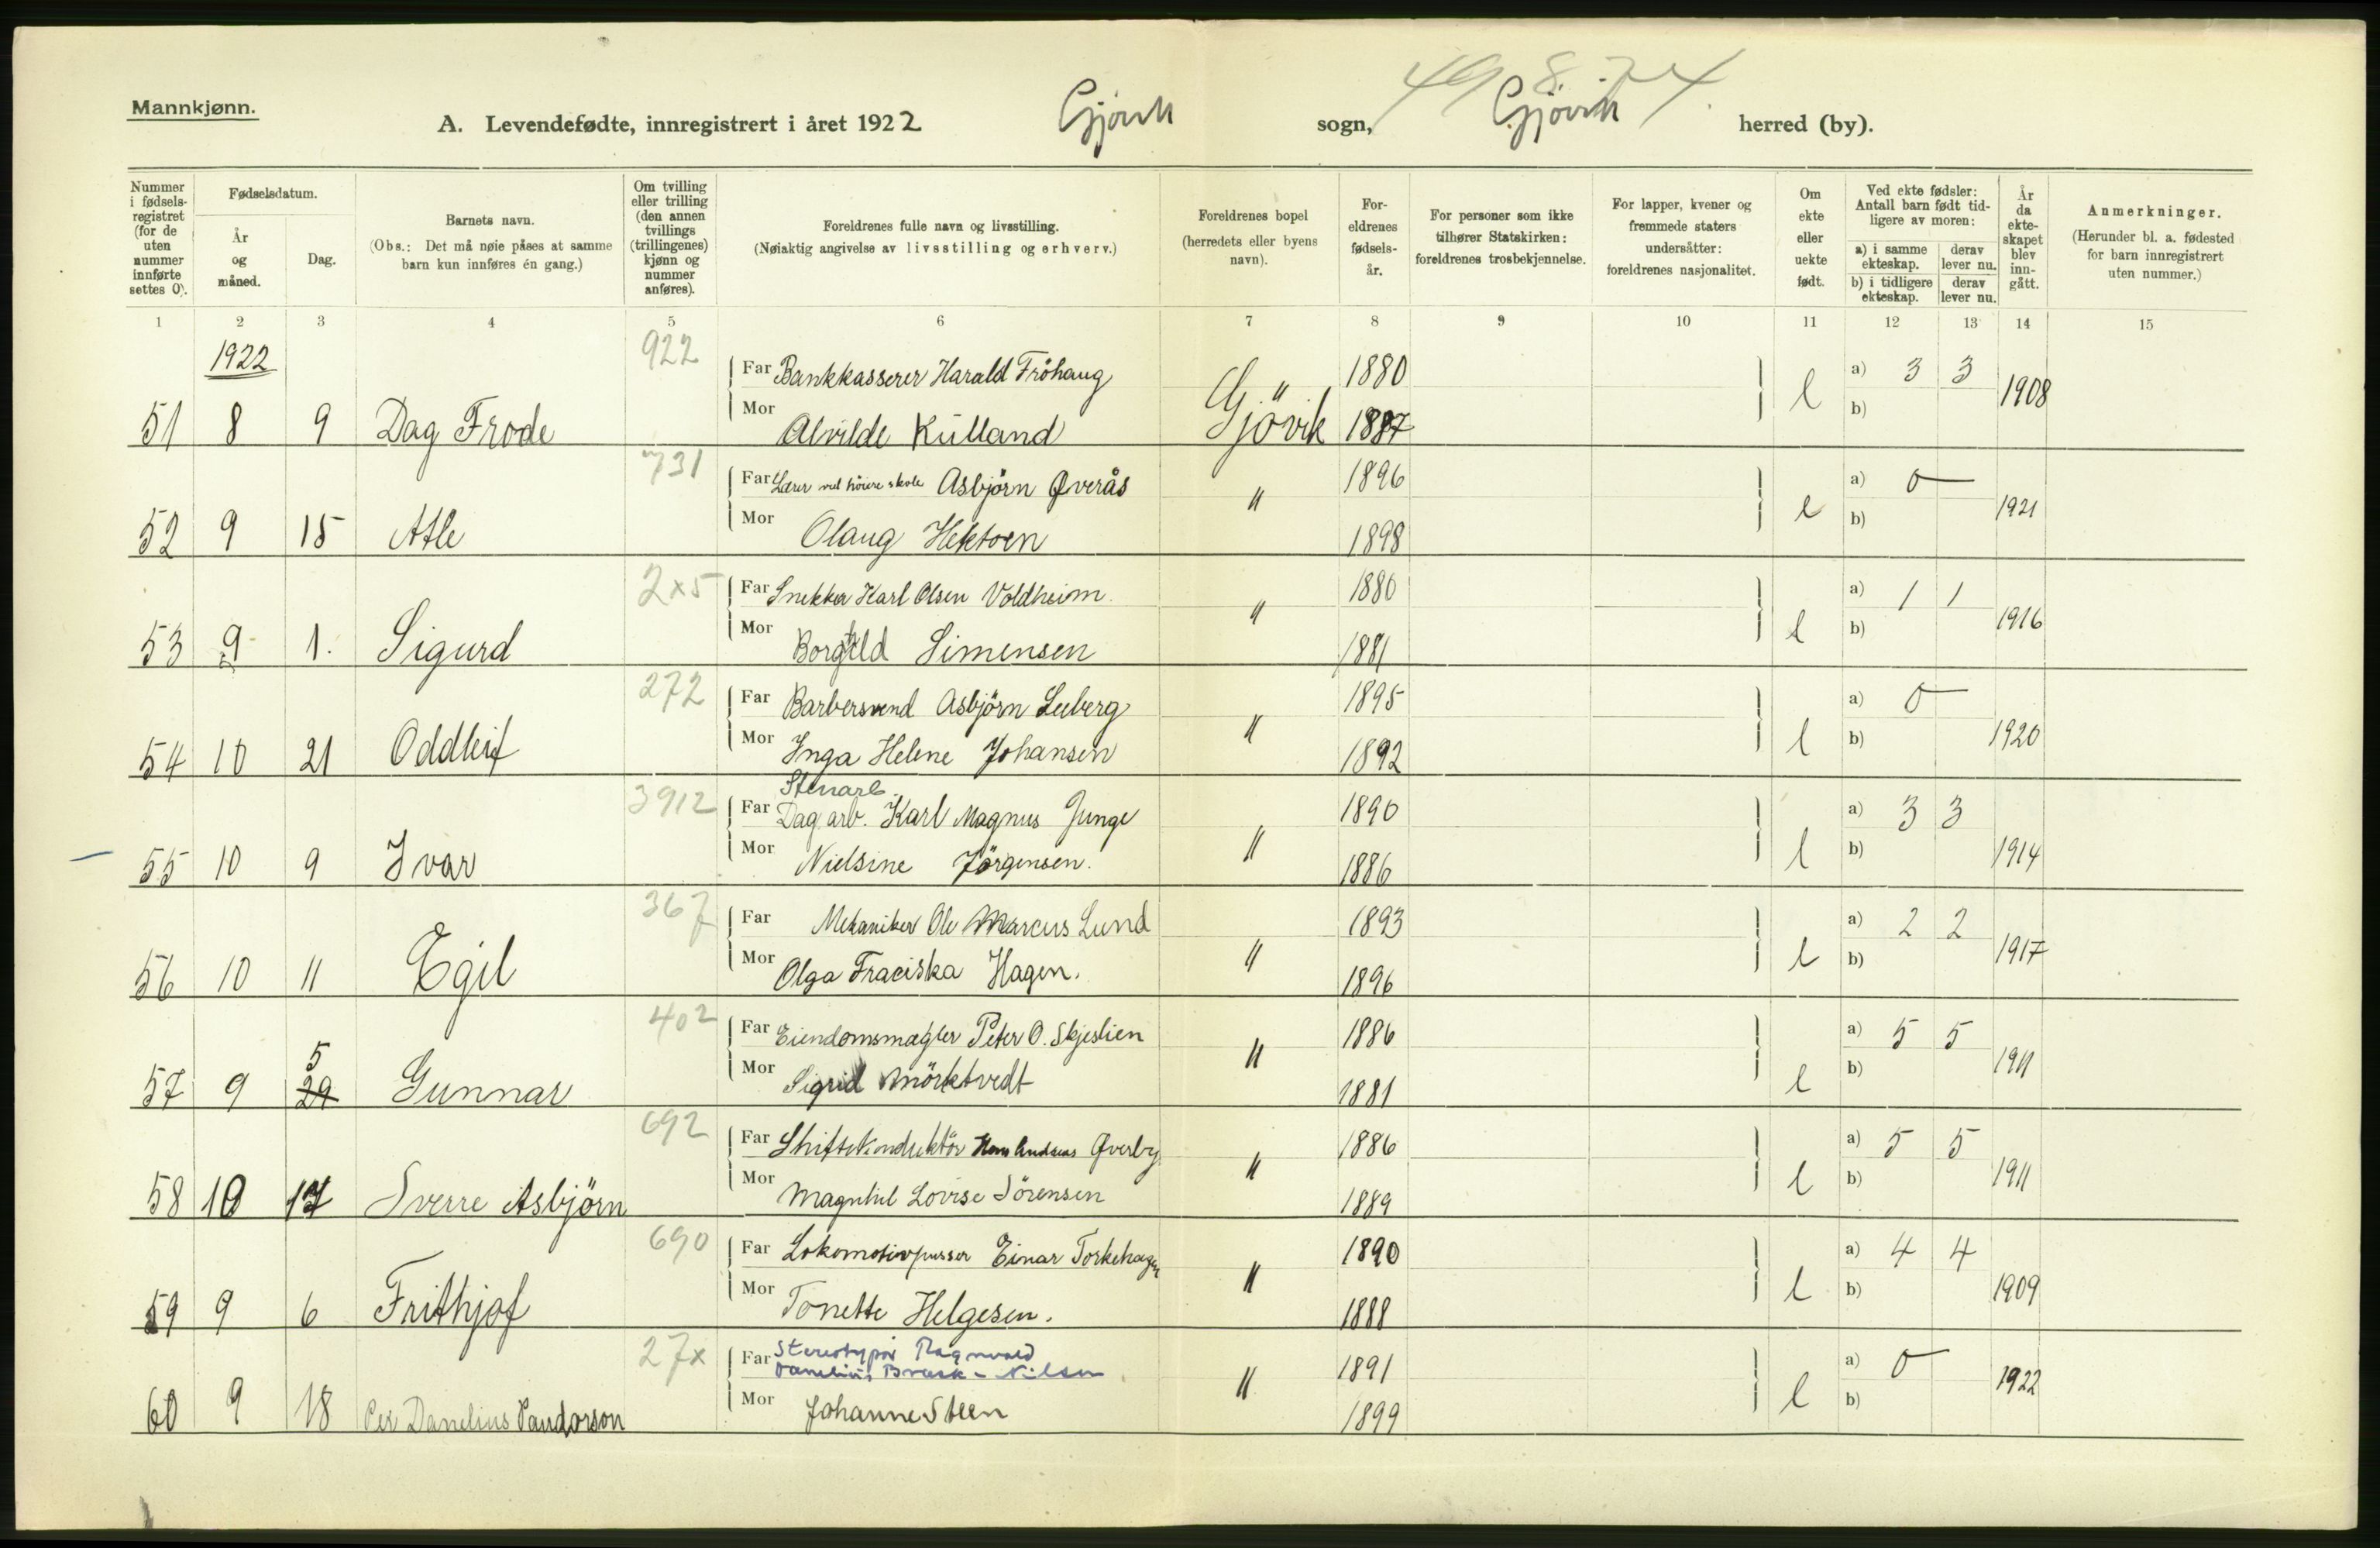 49 8. 74.
Mannkjønn.
A. Levendefødte, innregistrert i året 1922 Gjøvik sogn, Gjøvik herred (by).
Nummer i fødsels-registret (for de uten nummer innførte settes 0).
Fødselsdatum.
År og måned.
Dag.
Barnets navn.
(Obs.: Det må nøie påses at samme barn kun innføres én gang.)
Om tvilling eller trilling (den annen tvillings (trillingenes) kjønn og nummer anføres).
Foreldrenes fulle navn og livsstilling.
(Nøiaktig angivelse av livsstilling og erhverv.)
Foreldrenes bopel (herredets eller byens navn).
For-eldrenes fødsels-år.
For personer som ikke tilhører Statskirken: foreldrenes trosbekjennelse.
For lapper, kvener og fremmede staters undersåtter: foreldrenes nasjonalitet.
Om ekte eller uekte født.
Ved ekte fødsler: Antall barn født tid-ligere av moren:
a) i samme ekteskap. derav lever nu.
b) i tidligere ekteskap. derav lever nu.
År da ekte-skapet blev inn-gått.
Anmerkninger.
(Herunder bl. a. fødested for barn innregistrert uten nummer.)
1 2 3 4 5 6 7 8 9 10 11 12 13 14 15
1922
922 Far Bankkasserer Harald Fröhaug " 1880 a) 3 3
51 8 9 Dag Frode Mor Alvilde Kulland Gjövik 1887 l b) 1908
731 Far Lærer ved höiere skole Asbjörn Øverås " 1896 a) 0
52 9 15 Atle Mor Olaug Hektoen 1898 e b) 1921
2x5 Far Snekker Karl Olsen Voldheim. " 1880 a) 1 1
53 9 1. Sigurd Mor Borghild Simensen 1881 l b) 1916
272 Far Barbersvend Asbjörn Leeberg " 1895 a) 0
54 10 21 Oddleif Mor Inga Helene Johansen 1892 l b) 1920
Stenarb.
3912 Far Dag arb. Karl Magnus Junge " 1890 a) 3 3
55 10 9 Ivar Mor Nielsine Jörgensen. 1886 l b) 1914
367 Far Mekaniker Ole Marcus Lund " 1893 a) 2 2
56 10 11 Egil Mor Olga Fraciska Hagen. 1896 l b) 1917
402 Far Eiendomsmægler Peter O. Skjeslien " 1886 a) 5 5
5
57 9 29 Gunnar Mor Sigrid Mörktvedt 1881 l b) 1911
692 Far Skiftekonduktör Hans Andreas Øverby " 1886 a) 5 5
58 10 17 Sverre Asbjörn Mor Magnhil Lovise Sörensen 1889 l b) 1911
690 Far Lokomotivpusser Einar Torkehagen " 1890 a) 4 4
59 9 6 Frithjof Mor Tonette Helgesen. 1888 l b) 1909
27x Far Stereotypör Ragnvald
Danelius Brask - Nilsen " 1891 a) 0
60 9 18 Per Danelius Vandorson Mor Johanne Steen 1899 l b) 1922